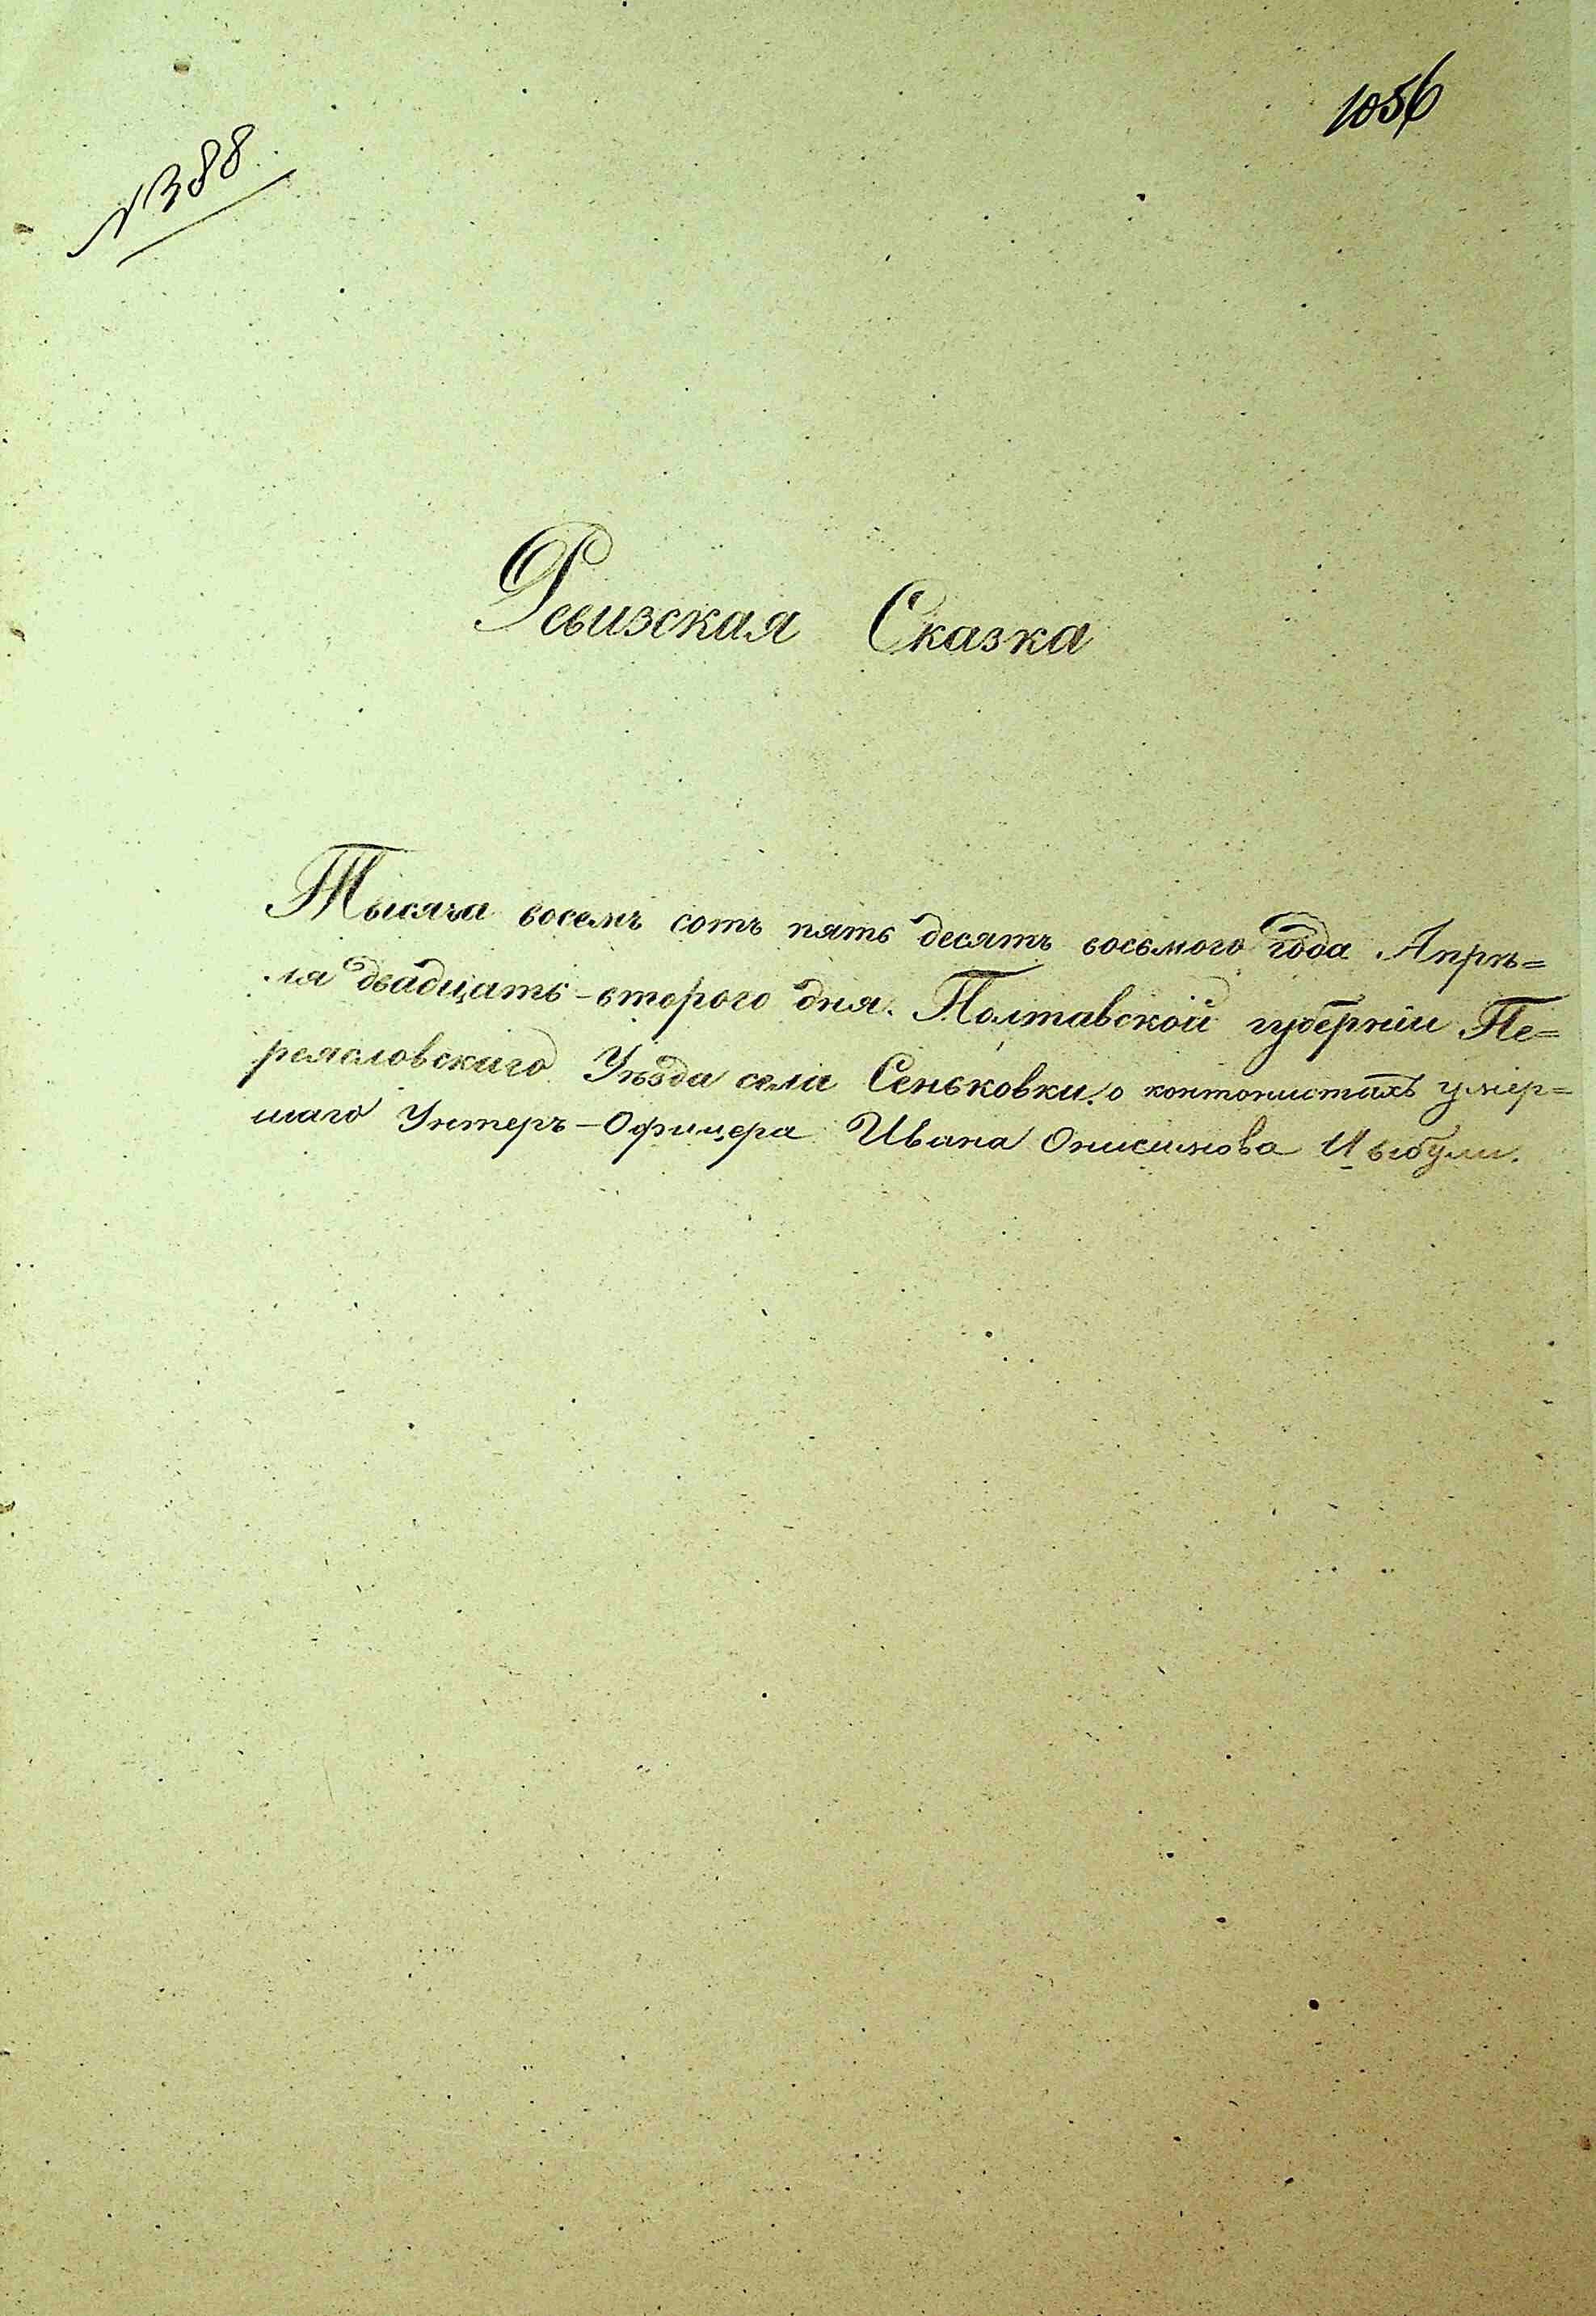 1056
№388
Ревизская Сказка
Тысяча восемъ сотъ пять десятъ восьмого года Апрѣ=
ля двадцать-второго дня. Полтавской губерніи Пе=
реясловскаго Уѣзда села Сеньковки, о контонистахъ умер=
шаго Унтеръ-Офицера Ивана Онисимова Цыбули.